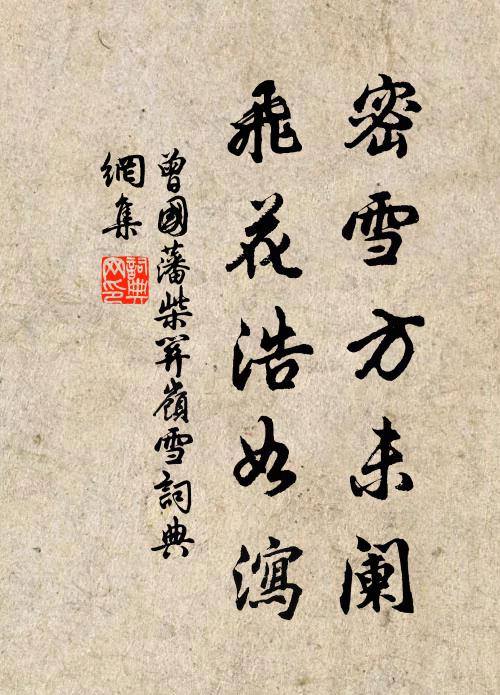 密雪方未阑
飛花浩如瀉
曾國藩柴關嶺雪詞典
網集
詞典
网印